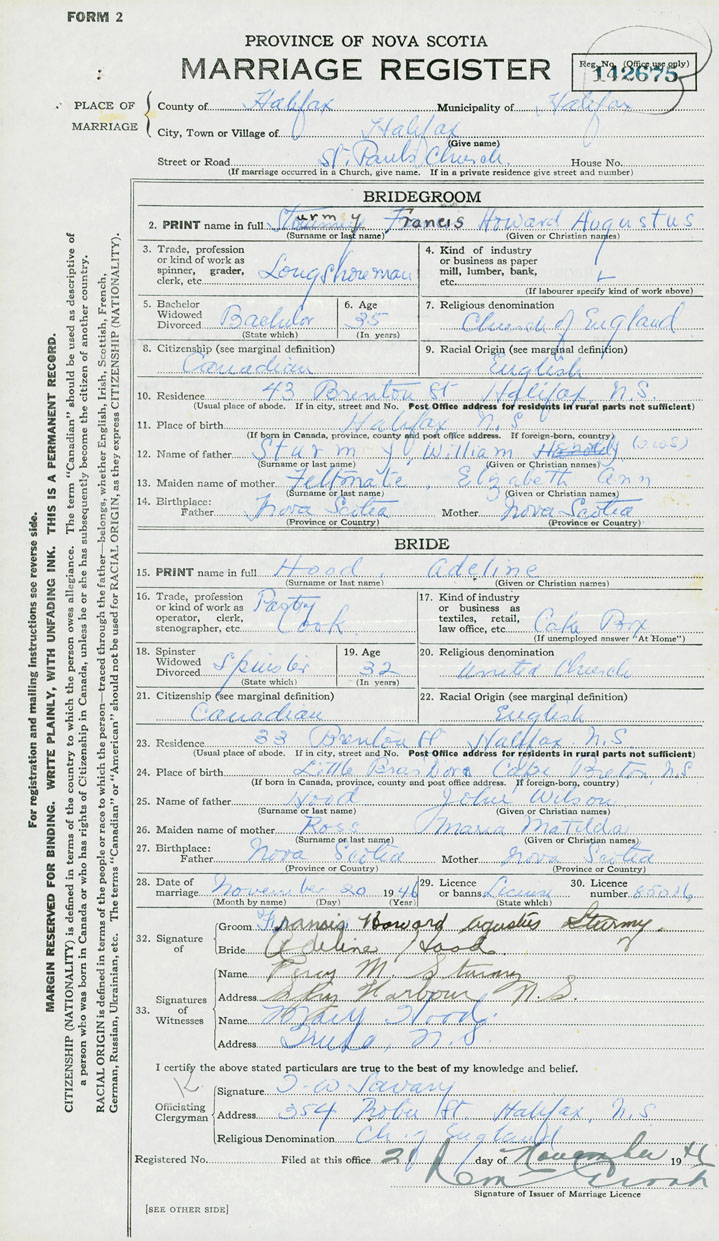 FORM 2
PROVINCE OF NOVA SCOTIA
MARRIAGE REGISTER
Reg. No. (Office use only)
142675
PLACE OF MARRIAGE
County of Halifax Municipality of Halifax
City, Town or Village of Halifax
(Give name)
Street or Road St. Pauls Church House No.
(If marriage occurred in a Church, give name. If in a private residence give street and number)
BRIDEGROOM
2. PRINT name in full Sturmy Francis Howard Augustus
(Surname or last name) (Given or Christian names)
3. Trade, profession or kind of work as spinner, grader, clerk, etc. Longshoreman
4. Kind of industry or business as paper mill, lumber, bank, etc.
(If labourer specify kind of work above)
5. Bachelor Widowed Divorced Bachelor
(State which)
6. Age 35
(In years)
7. Religious denomination
Church of England
8. Citizenship (see marginal definition)
Canadian
9. Racial Origin (see marginal definition)
English
10. Residence 43 Brenton St Halifax, N.S.
(Usual place of abode. If in city, street and No. Post Office address for residents in rural parts not sufficient)
11. Place of birth Halifax N.S
(If born in Canada, province, county and post office address. If foreign-born, country)
12. Name of father Sturmy, William
(Surname or last name) (Given or Christian names)
13. Maiden name of mother Elizabeth Ann
(Surname or last name) (Given or Christian names)
14. Birthplace: Father Nova Scotia Mother Nova Scotia
(Province or Country) (Province or Country)
BRIDE
15. PRINT name in full Hood, Adeline
(Surname or last name) (Given or Christian names)
16. Trade, profession or kind of work as operator, clerk, stenographer, etc. Pastry Cook
17. Kind of industry or business as textiles, retail, law office, etc. Cake Box
(If unemployed answer "At Home")
18. Spinster Widowed Divorced Spinster
(State which)
19. Age 32
(In years)
20. Religious denomination
United Church
21. Citizenship (see marginal definition)
Canadian
22. Racial Origin (see marginal definition)
English
23. Residence 33 Brenton St Halifax N.S
(Usual place of abode. If in city, street and No. Post Office address for residents in rural parts not sufficient)
24. Place of birth Little Bras D'ora Cape Breton, N.S
(If born in Canada, province, county and post office address. If foreign-born, country)
25. Name of father Hood John Wilson
(Surname or last name) (Given or Christian names)
26. Maiden name of mother Rose Maria Matilda
(Surname or last name) (Given or Christian names)
27. Birthplace: Father Nova Scotia Mother Nova Scotia
(Province or Country) (Province or Country)
28. Date of marriage November 20 1946
(Month by name) (Day) (Year)
29. Licence or banns License
(State which)
30. Licence number 85026
32. Signature of
Groom Francis Howard Agustus Sturmy.
Bride Adeline Hood
33. Signatures of Witnesses
Name Percy M. Sturmy
Address Spry Harbour N.S.
Name Mary Hood
Address Truro, N.S.
I certify the above stated particulars are true to the best of my knowledge and belief.
Officiating Clergyman
Signature T W Savary
Address 354 Robie St. Halifax, N.S
Religious Denomination Ch. of England
Registered No. Filed at this office 21 day of November 1946
Signature of Issuer of Marriage Licence
[SEE OTHER SIDE]
For registration and mailing instructions see reverse side.
MARGIN RESERVED FOR BINDING. WRITE PLAINLY, WITH UNFADING INK. THIS IS A PERMANENT RECORD.
CITIZENSHIP (NATIONALITY) is defined in terms of the country to which the person owes allegiance. The term "Canadian" should be used as descriptive of
a person who was born in Canada or who has rights of Citizenship in Canada, unless he or she has subsequently become the citizen of another country.
RACIAL ORIGIN is defined in terms of the people or race to which the person—traced through the father—belongs, whether English, Irish, Scottish, French,
German, Russian, Ukrainian, etc. The terms "Canadian" or "American" should not be used for RACIAL ORIGIN, as they express CITIZENSHIP (NATIONALITY).